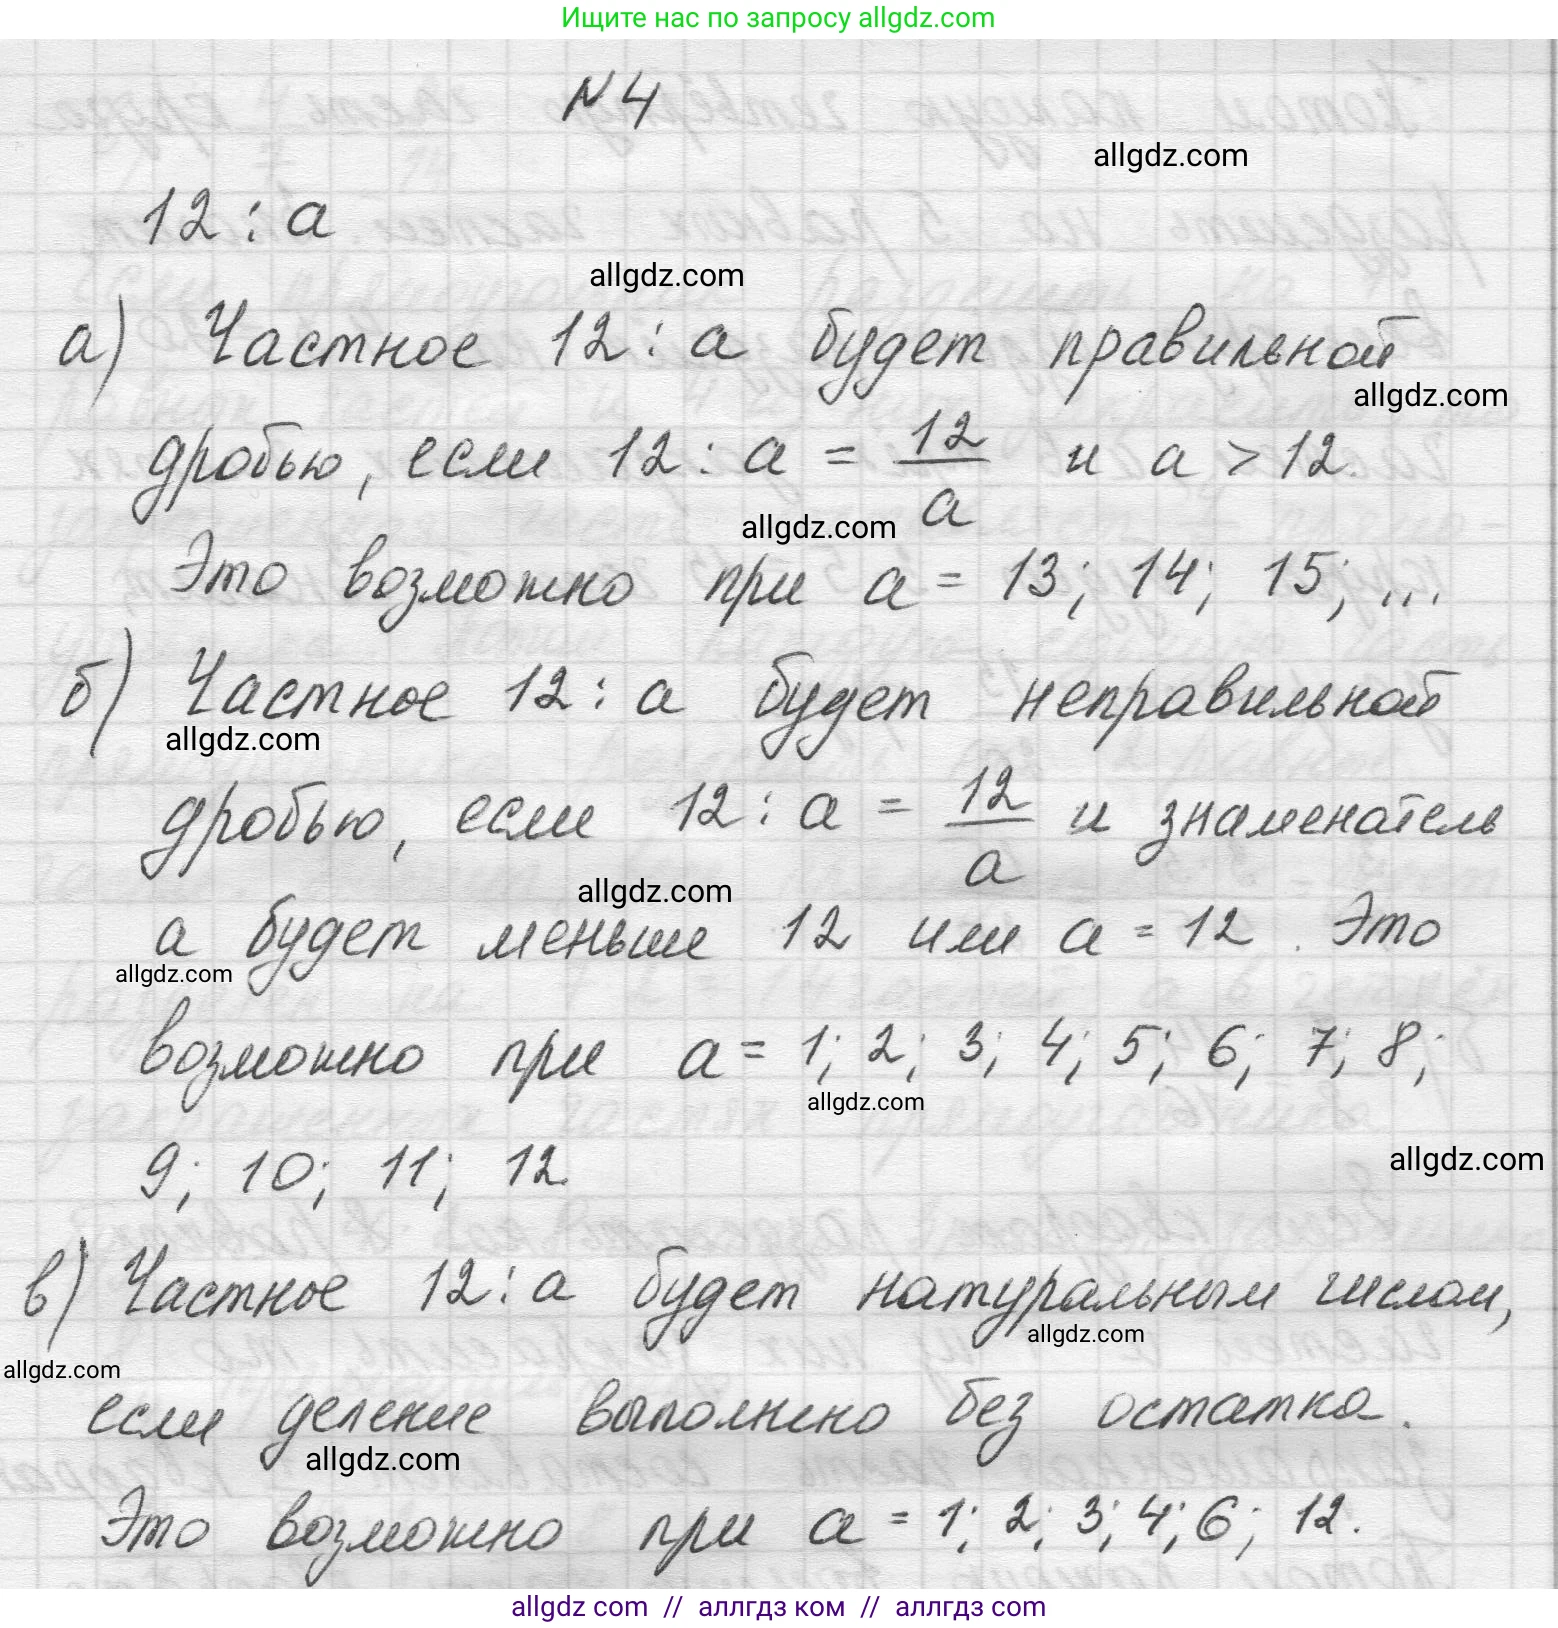 Ищите нас по запросу allgdz.com
N4
allgdz.com
12 : a
allgdz.com
а) Частное 12 : a будет правильной
allgdz.com
дробью, если 12 : a = 12/a и a > 12.
allgdz.com
Это возможно при a = 13; 14; 15; ...
б) Частное 12 : a будет неправильной
allgdz.com
дробью, если 12 : a = 12/a и знаменатель
allgdz.com
a будет меньше 12 или a = 12. Это
allgdz.com
возможно при a = 1; 2; 3; 4; 5; 6; 7; 8;
allgdz.com
9; 10; 11; 12.
allgdz.com
в) Частное 12 : a будет натуральным числом,
allgdz.com
allgdz.com
если деление выполнено без остатка.
allgdz.com
Это возможно при a = 1; 2; 3; 4; 6; 12.
allgdz com // аллгдз ком // allgdz com